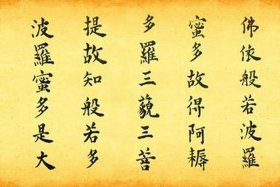 佛依般若波羅
蜜多故得阿耨
多羅三藐三菩
提故知般若多
波羅蜜多是大